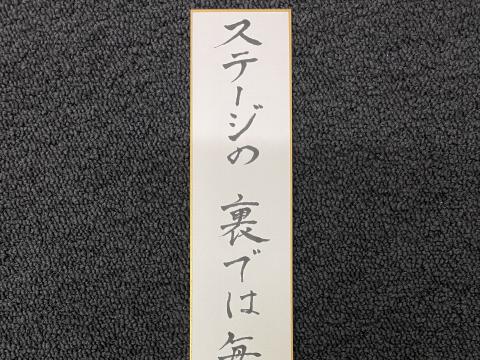 ステージの 裏では